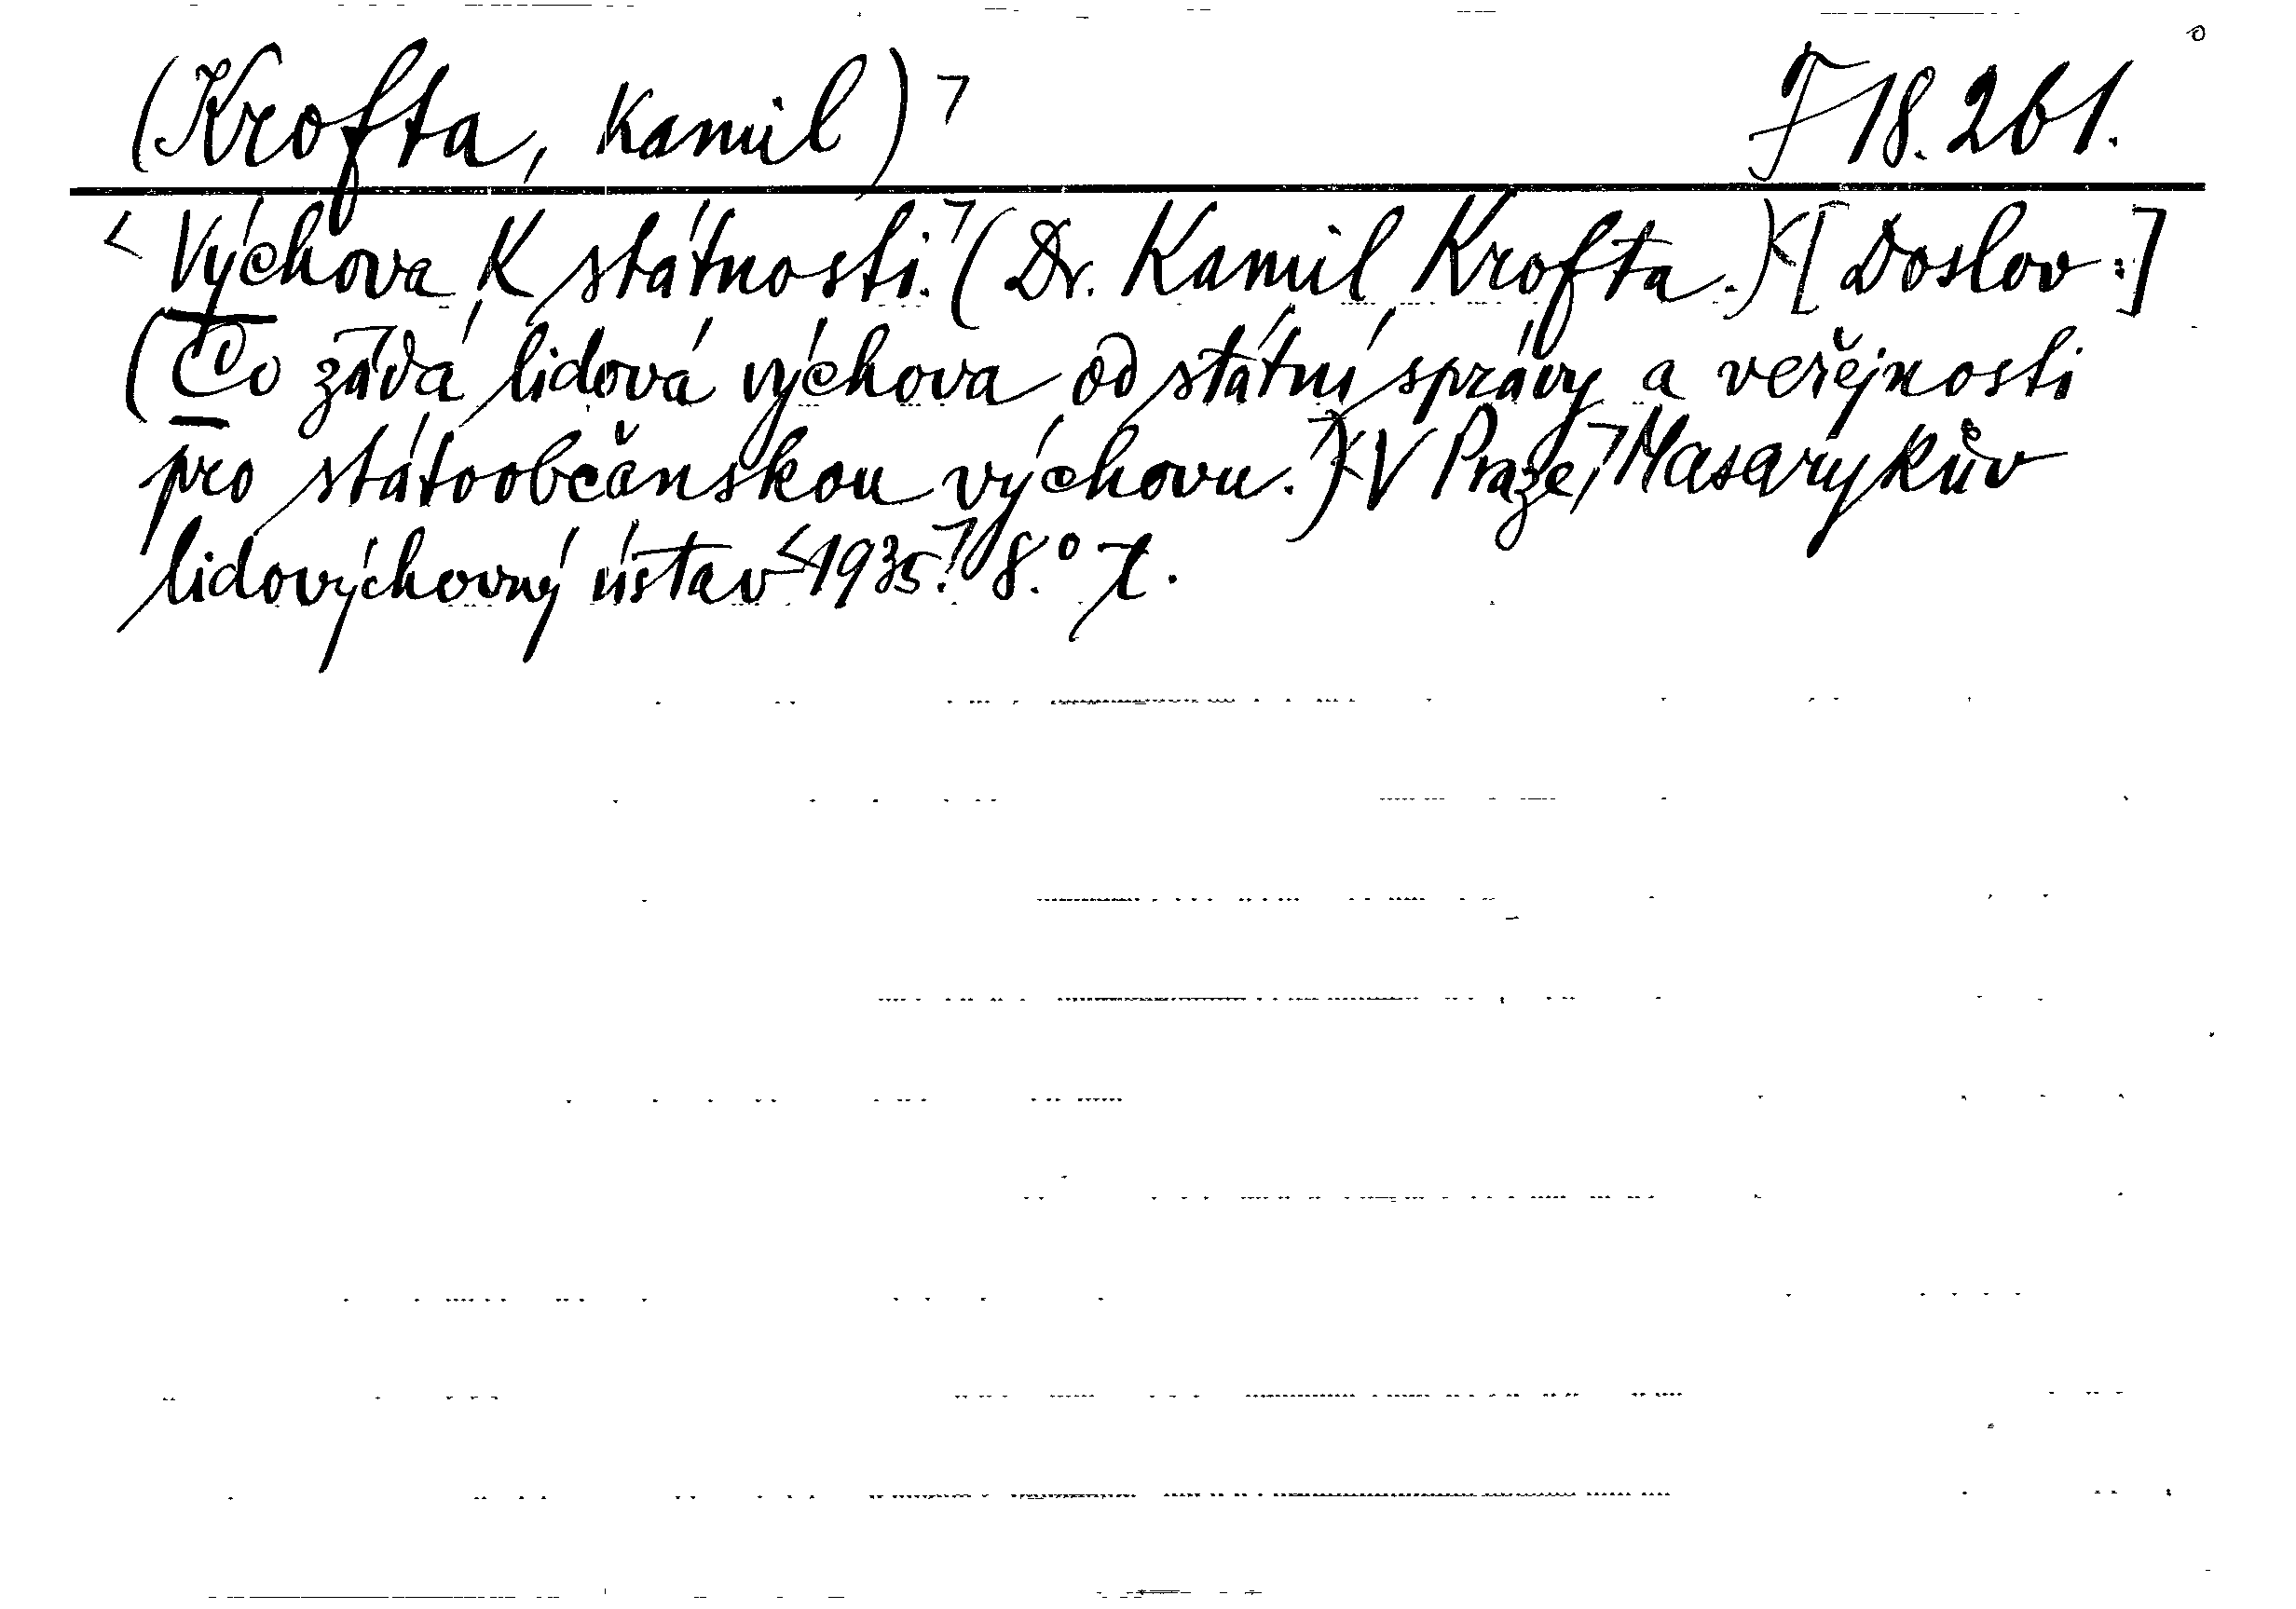 (Krofta, Kamil)⌝ F 18.261.
<Výchova k státnosti.⌝ (Dr. Kamil Krofta.)<[Doslov:]
(Co žádá lidová výchova od státní správy a veřejnosti
pro státoobčanskou výchovu.⌝)<V Praze,⌝ Masarykův
lidovýchovný ústav <1935.⌝ 8.°